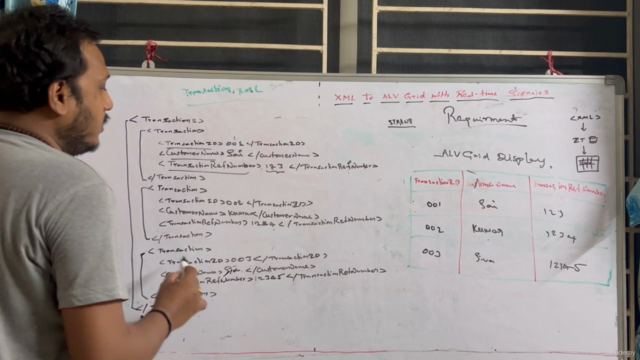 Transactions.XML
XML To ALV Grid with Real-time Scenarios
<Transactions>
<Transaction>
<TransactionID>001</TransactionID>
<CustomerName>Sai</CustomerName>
<TransactionRefNumber>123</TransactionRefNumber>
</Transaction>
<Transaction>
<TransactionID>002</TransactionID>
<CustomerName>Kumar</CustomerName>
<TransactionRefNumber>1234</TransactionRefNumber>
</Transaction>
<Transaction>
<TransactionID>003</TransactionID>
Name>Siva</CustomerName>
RefNumber>12345</TransactionRefNumber>
Requirment
<XML>
ALV Grid Display.
TransactionID
001 Sai 123
002 Kumar 1234
003 Siva 12345